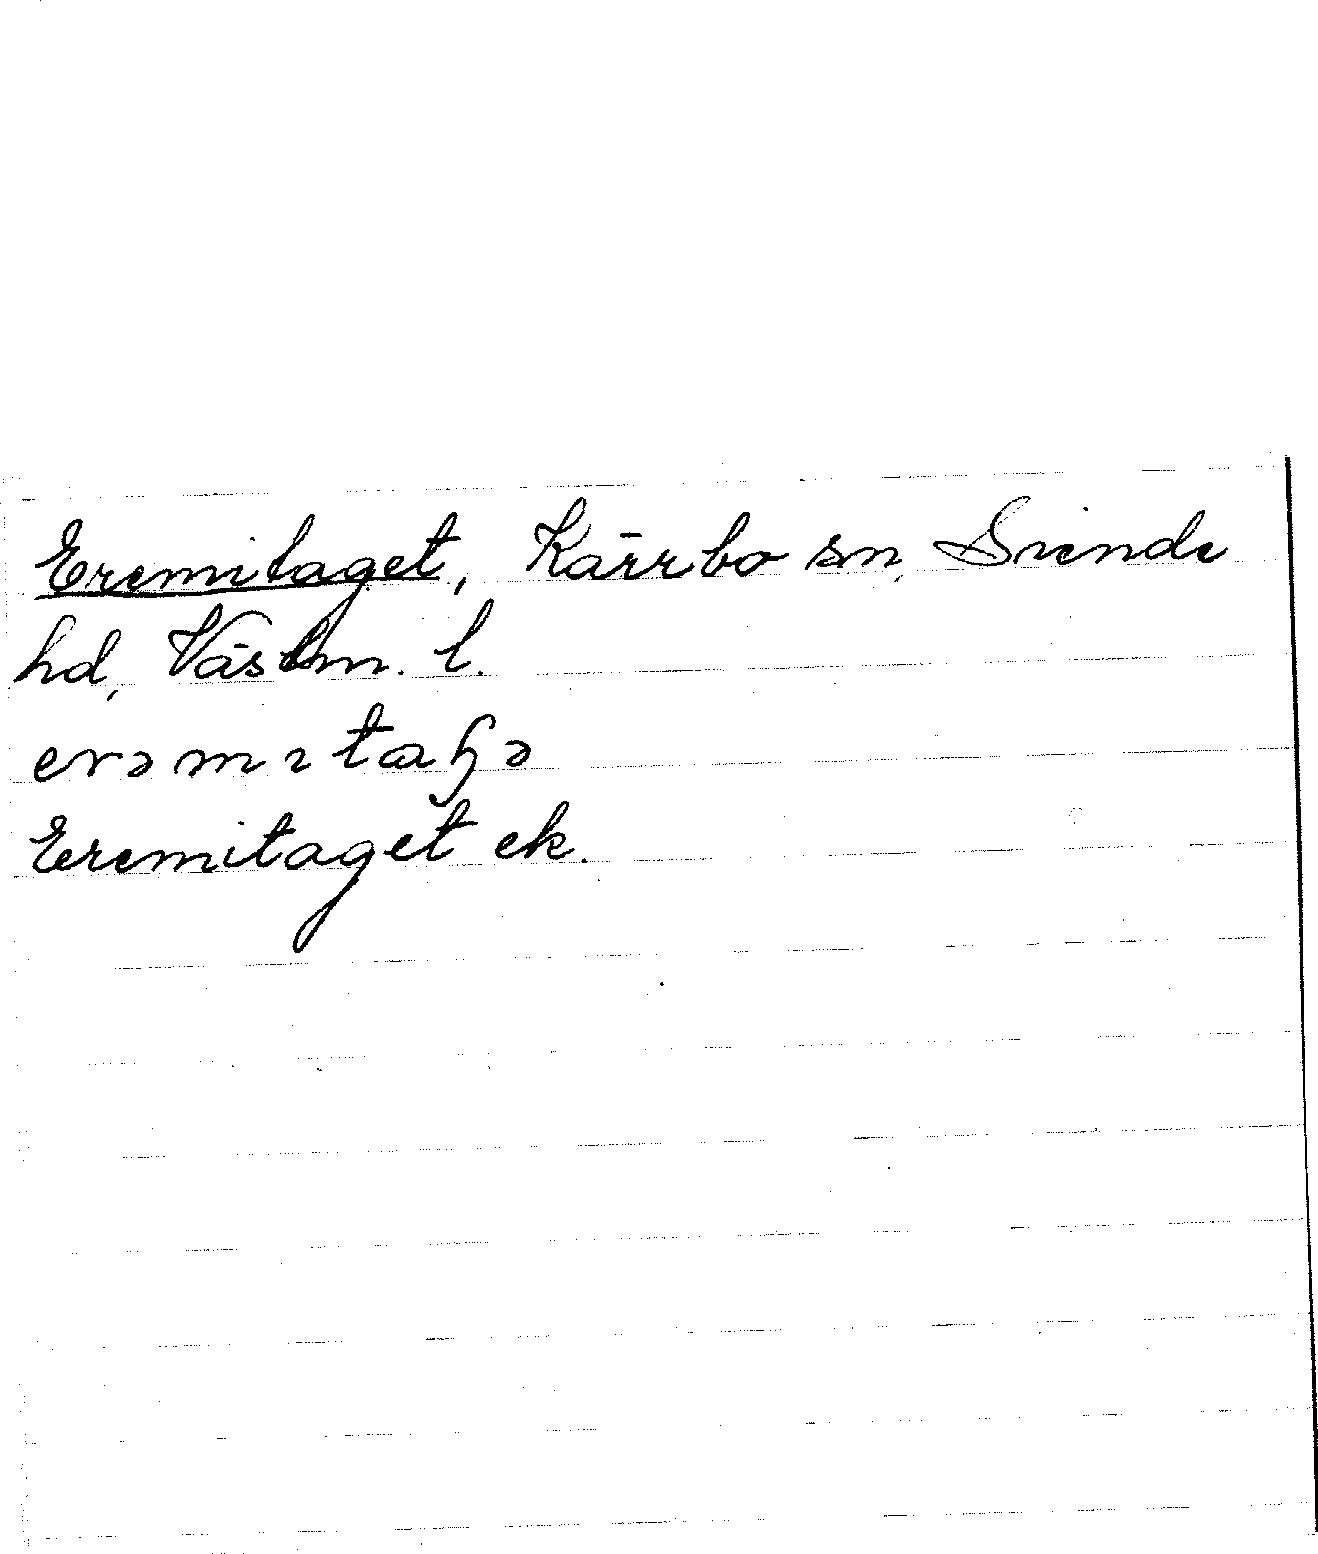 Eremitaget, Kärrbo sn, Siende
hd, Västm. l.
erəmıtaɧə
Eremitaget ek.